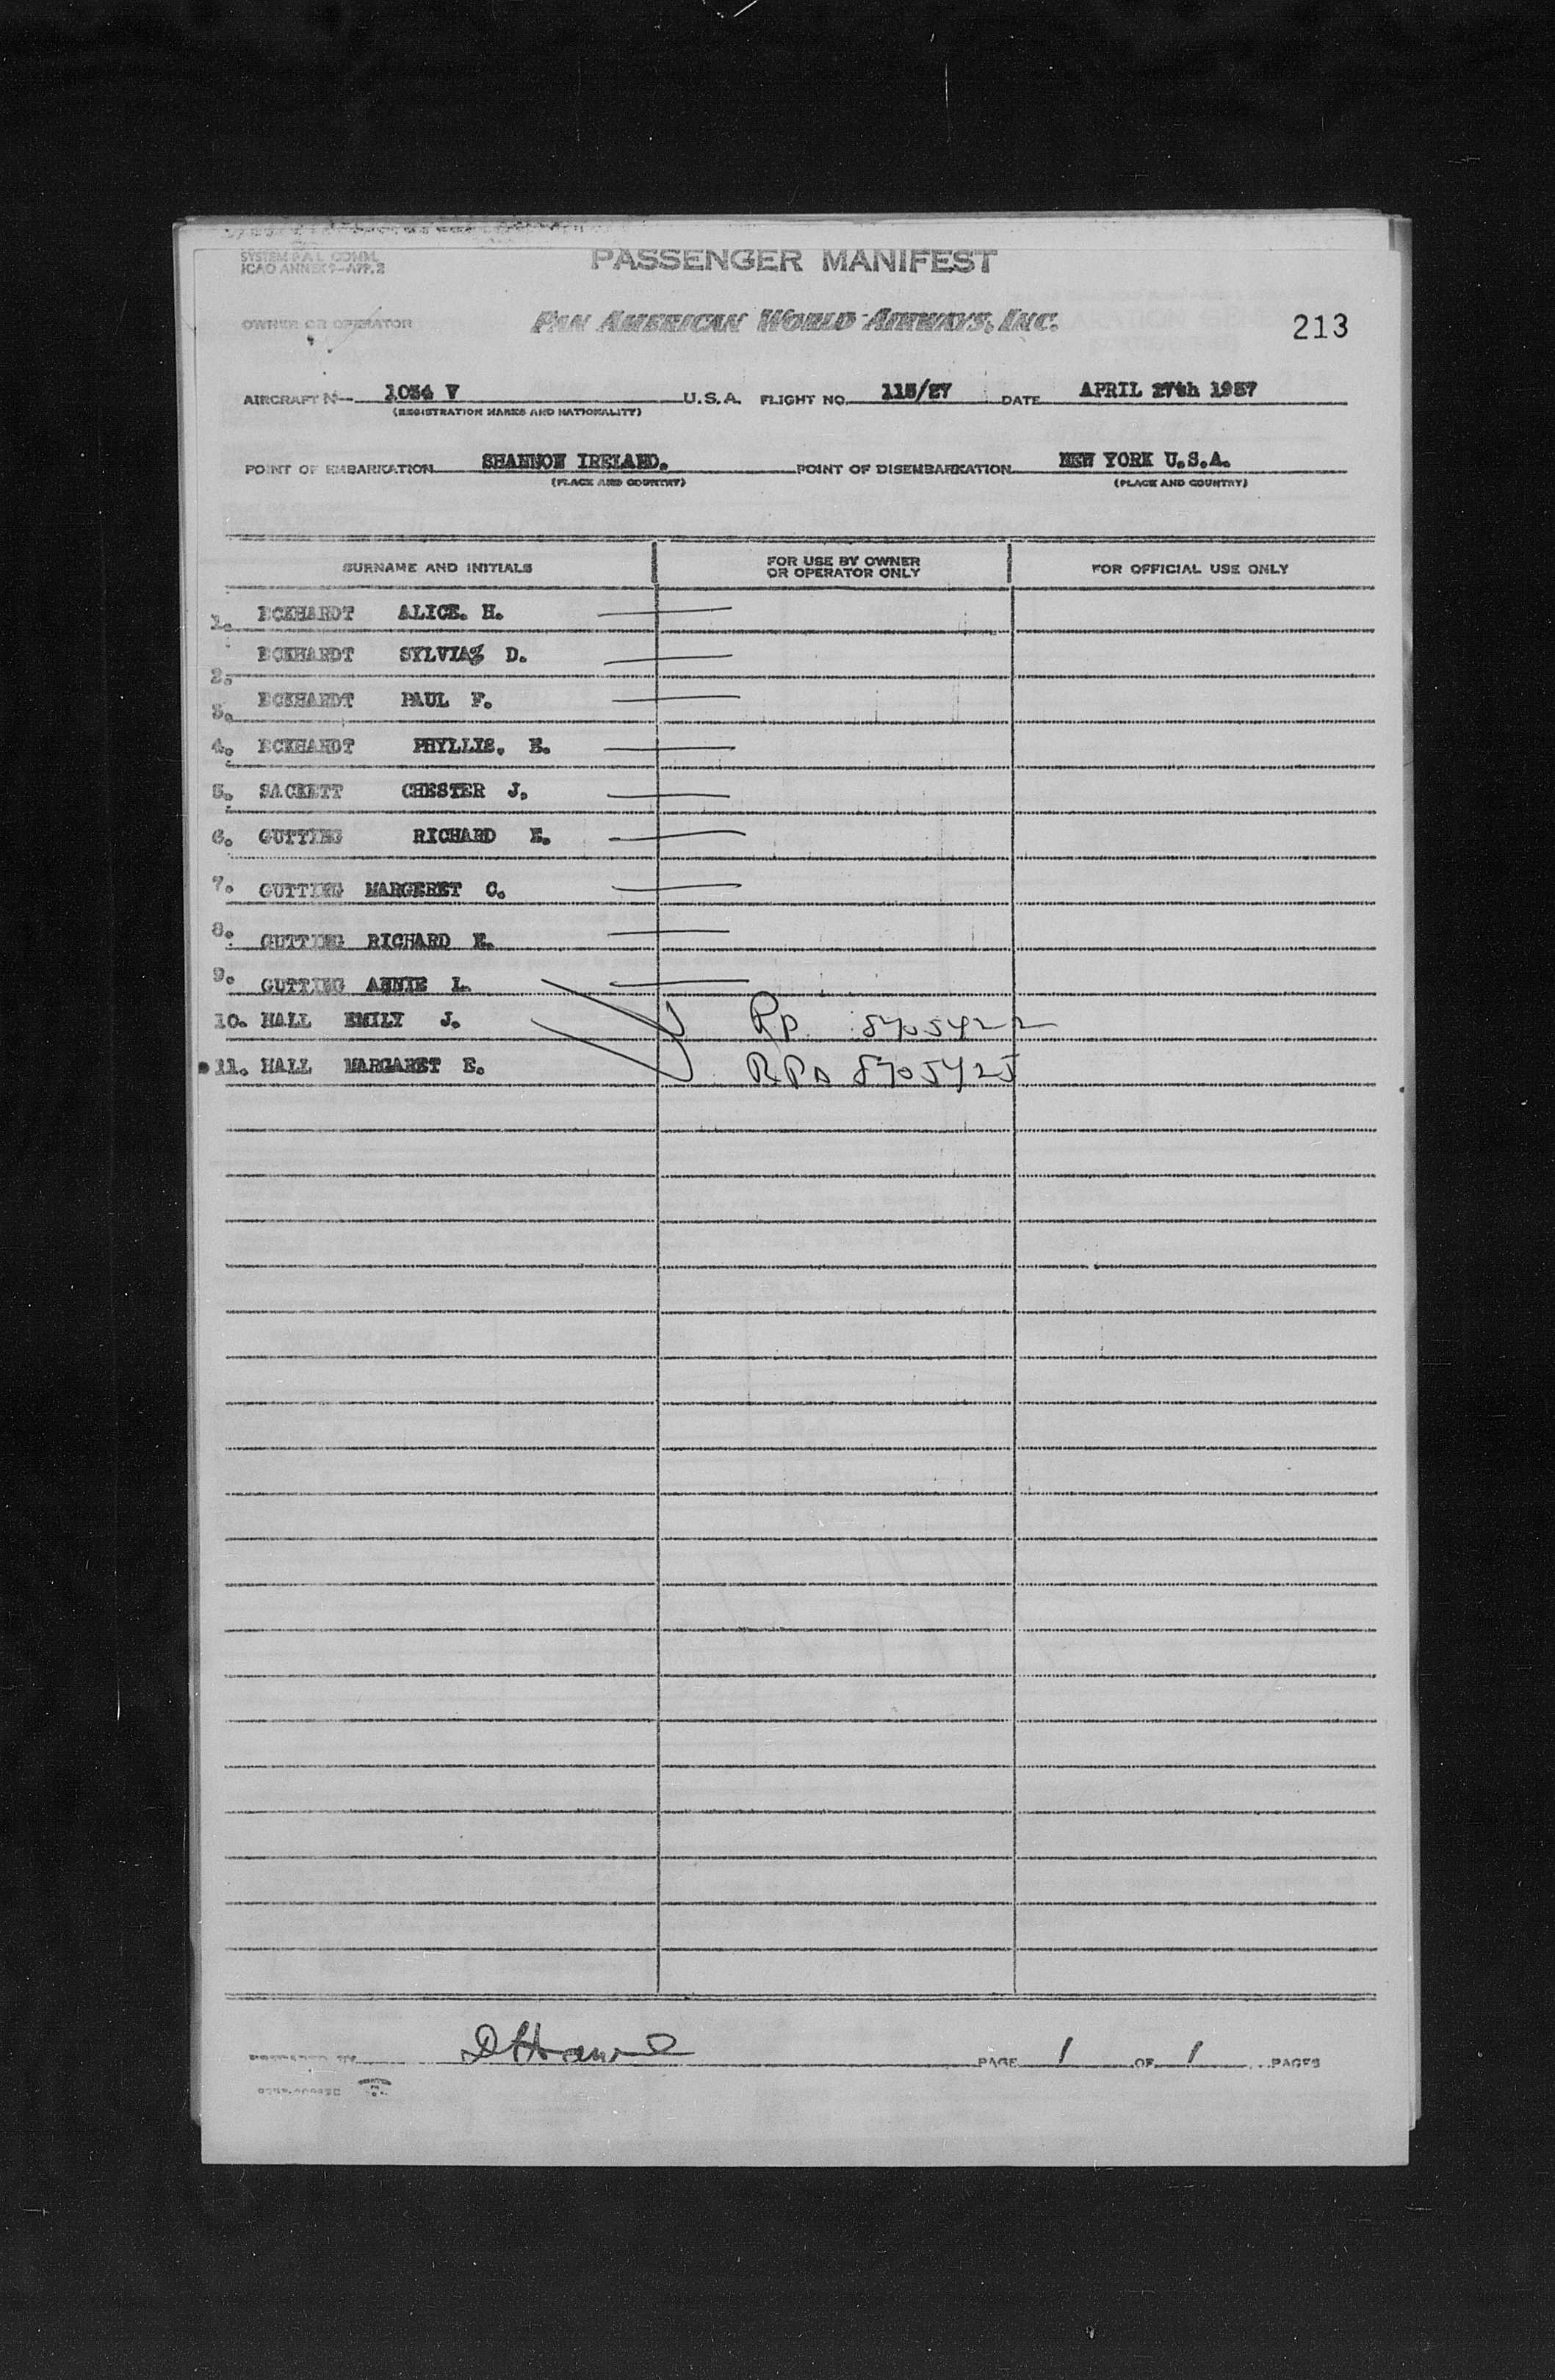 SYSTEM P.A.L. COMM.
ICAO ANNEX 9-APP. 2
PASSENGER MANIFEST
OWNER OR OPERATOR
PAN AMERICAN WORLD AIRWAYS, INC.
213
AIRCRAFT N— 1034 V U.S.A. FLIGHT NO. 115/27 DATE APRIL 27th 1957
(REGISTRATION MARKS AND NATIONALITY)
POINT OF EMBARKATION SHANNON IRELAND. POINT OF DISEMBARKATION NEW YORK U.S.A.
(PLACE AND COUNTRY) (PLACE AND COUNTRY)
SURNAME AND INITIALS FOR USE BY OWNER OR OPERATOR ONLY FOR OFFICIAL USE ONLY
1. ECKHARDT ALICE. H.
2. ECKHARDT SYLVIA D.
3. ECKHARDT PAUL F.
4. ECKHARDT PHYLLIS. E.
5. SACKETT CHESTER J.
6. GUTTING RICHARD E.
7. GUTTING MARGERET C.
8. GUTTING RICHARD E.
9. GUTTING ANNIE L.
10. HALL EMILY J. RP. 8705422
11. HALL MARGARET E. RPD 8705425
PREPARED BY PAGE 1 OF 1 PAGES